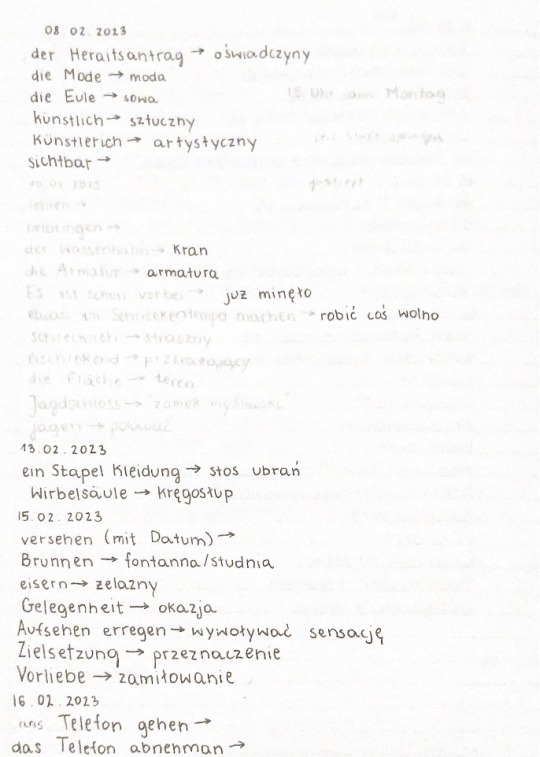 08.02.2023
der Heraitsantrag → oświadczyny
die Mode → moda
die Eule → sowa
15 Uhr am Montag
künstlich → sztuczny
künstlerich → artystyczny
sichtbar →
10.02.2023
lehren →
beibringen →
der Wassenhahn → kran
die Armatur → armatura
Es ist schon vorbei → już minęło
etwas im Schneckentempo machen → robić coś wolno
schrecklich → straszny
erschrekend → przerażający
die Fläche → teren
Jagdschloss → "zamek myśliwski"
jagen → polować
13.02.2023
ein Stapel Kleidung → stos ubrań
Wirbelsäule → kręgosłup
15.02.2023
versehen (mit Datum) →
Brunnen → fontanna/studnia
eisern → żelazny
Gelegenheit → okazja
Aufsehen erregen → wywoływać sensację
Zielsetzung → przeznaczenie
Vorliebe → zamiłowanie
16.02.2023
ans Telefon gehen →
das Telefon abnehman →